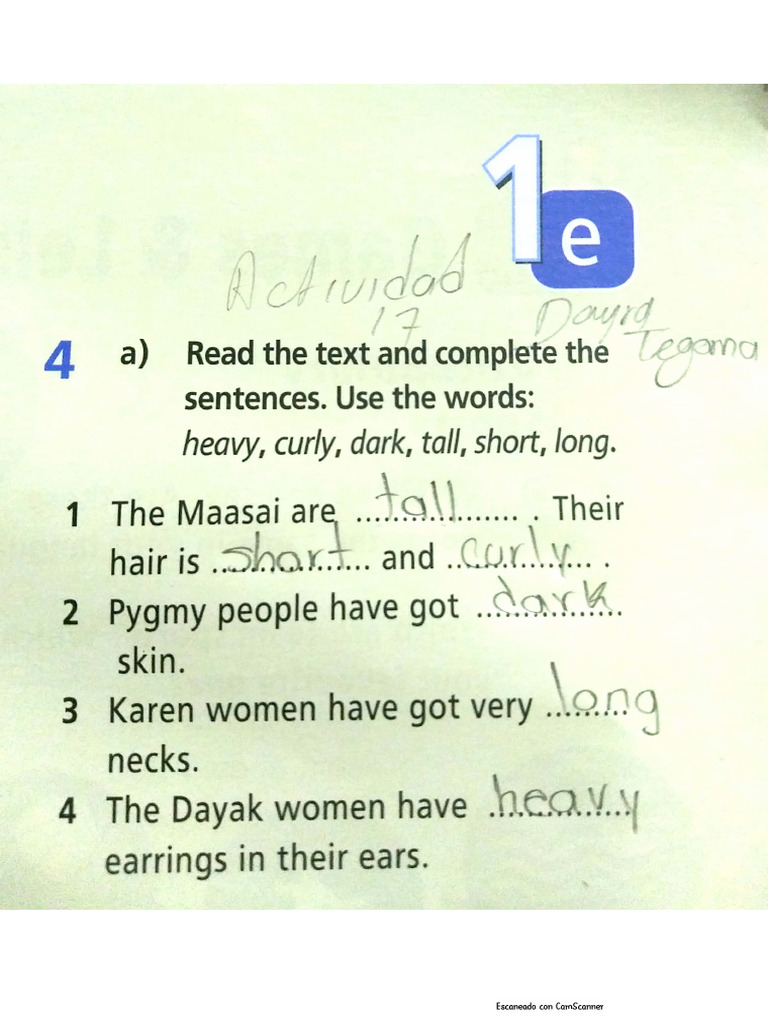 1e
Actividad
17
Dayra
Tegama
4 a) Read the text and complete the
sentences. Use the words:
heavy, curly, dark, tall, short, long.
1 The Maasai are ...tall... . Their
hair is ...short... and ...curly... .
2 Pygmy people have got ...dark...
skin.
3 Karen women have got very ...long
necks.
4 The Dayak women have ...heavy
earrings in their ears.
Escaneado con CamScanner